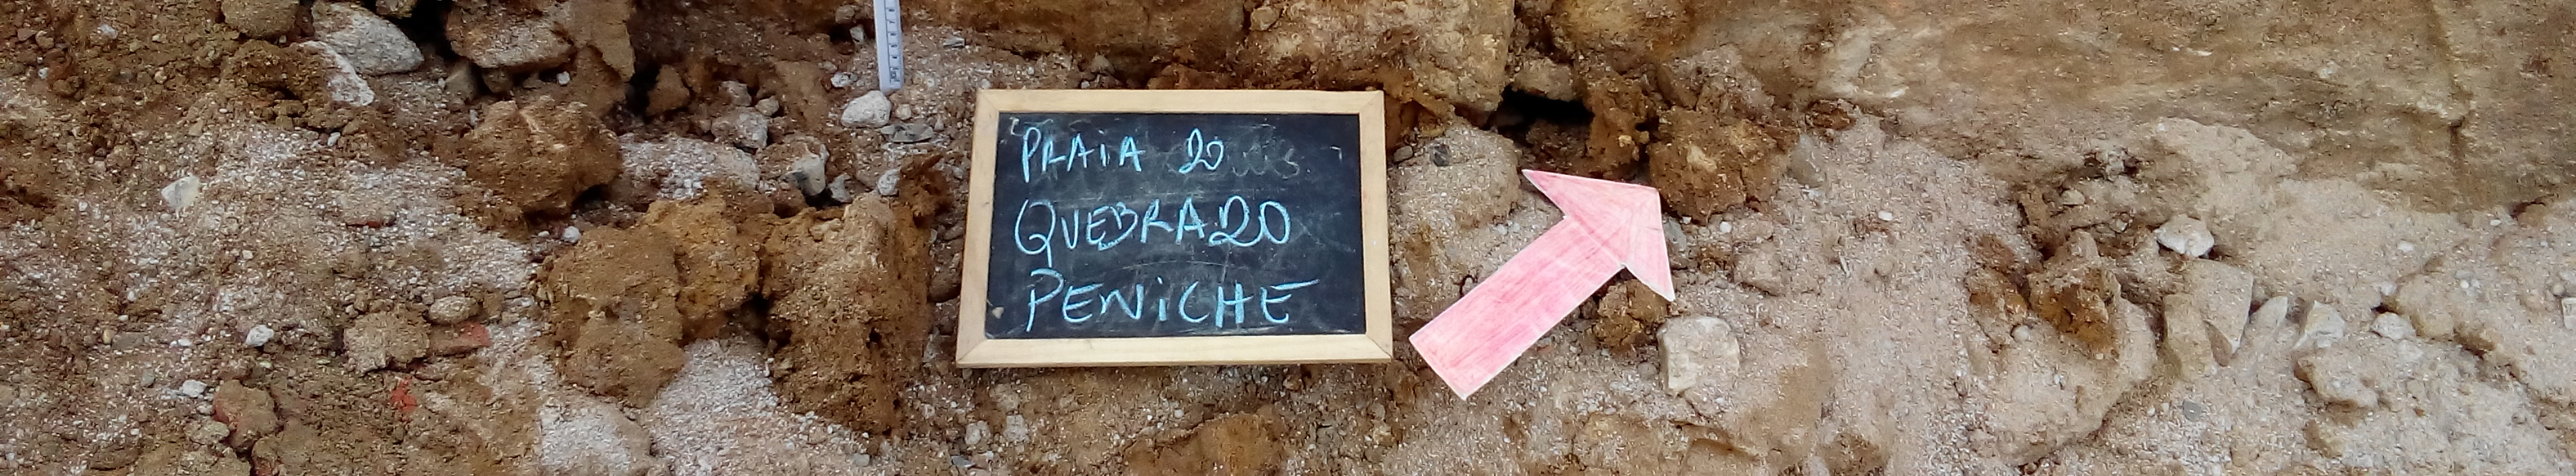 PRAIA DO
QUEBRADO
PENICHE